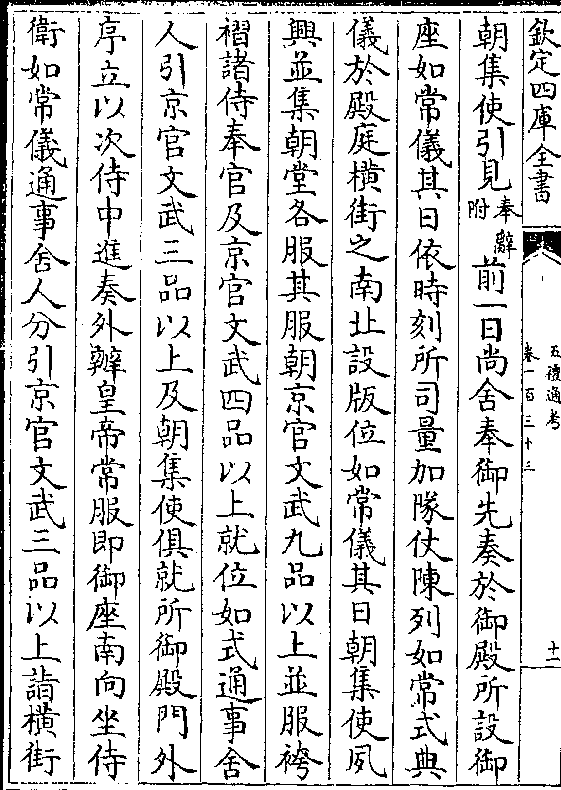 欽定四庫全書
五禮通考
卷一百三十三
十一
朝集使引見奉辭附 前一日尚舍奉御先奏於御殿所設御
座如常儀其日依時刻所司量加隊仗陳列如常式典
儀於殿庭橫街之南北設版位如常儀其日朝集使夙
興並集朝堂各服其服朝京官文武九品以上並服袴
褶諸侍奉官及京官文武四品以上就位如式通事舍
人引京官文武三品以上及朝集使俱就所御殿門外
序立以次侍中進奏外辦皇帝常服即御座南向坐侍
衛如常儀通事舍人分引京官文武三品以上詣橫街